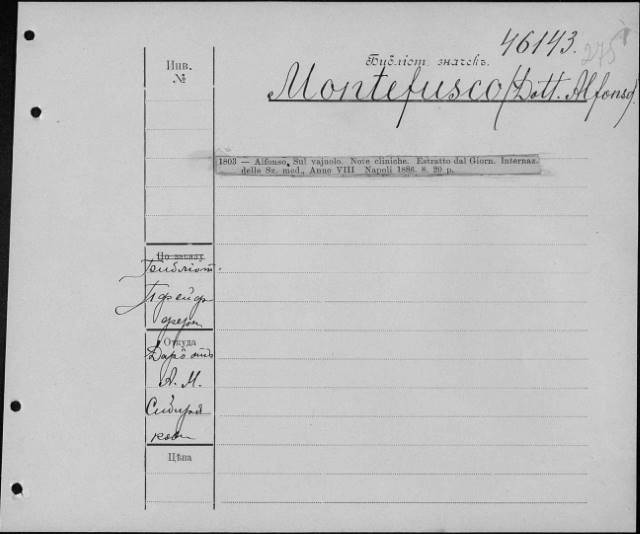 46143.
275
Инв.
№
Библіот. значекъ.
Montefusco (Dott. Alfonso)
1803 — Alfonso, Sul vajuolo. Note cliniche. Estratto dal Giorn. Internaz.
delle Sz. med., Anno VIII Napoli 1886. 8. 20 p.
По заказу
Библіот.
Пфейф
фера
Откуда
Даръ отъ
А. М.
Сибиря
кова
Цѣна